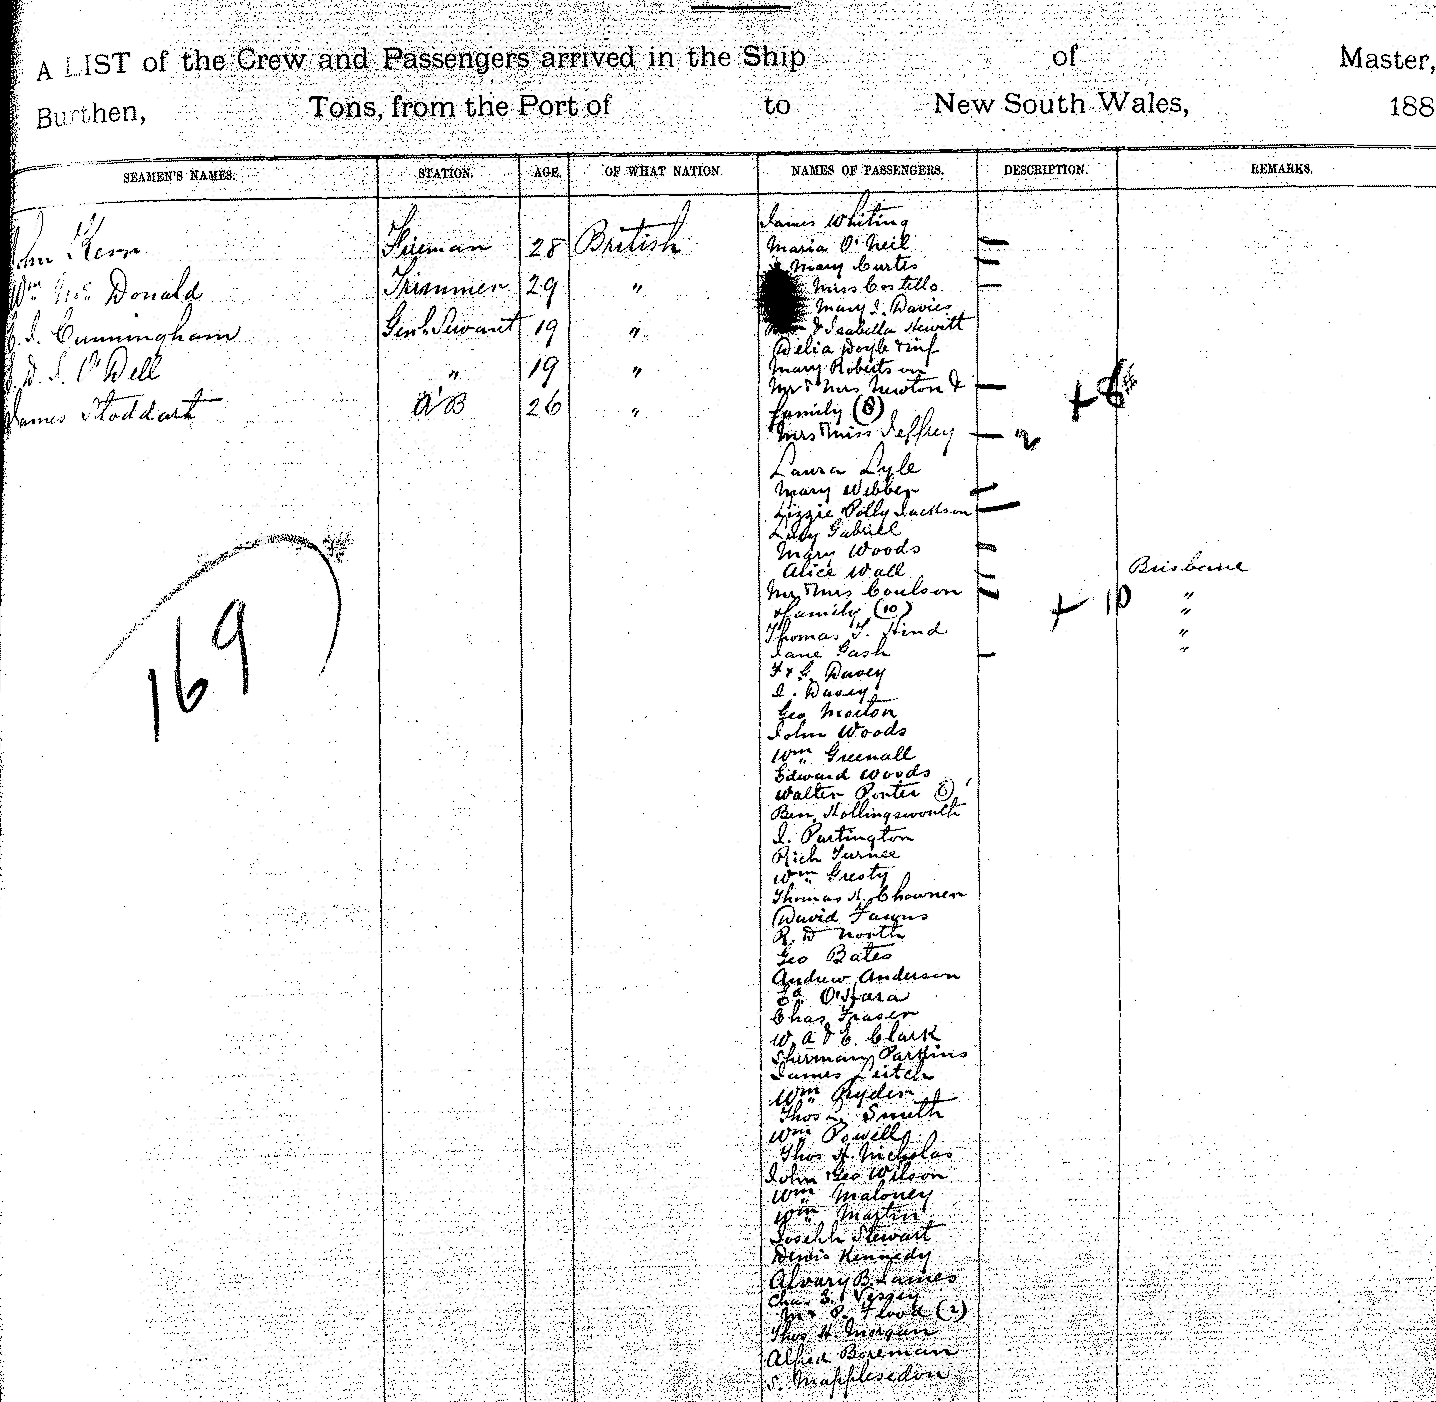 A LIST of the Crew and Passengers arrived in the Ship of Master,
Burthen, Tons, from the Port of to New South Wales, 188
SEAMEN'S NAMES. STATION. AGE. OF WHAT NATION. NAMES OF PASSENGERS. DESCRIPTION. REMARKS.
John Kerr Fireman 28 British
Wm Mc Donald Trimmer 29 "
J. Cunningham Genl Servant 19 "
O'Dell " 19 "
James Stoddart A B 26 "
169
James Whiting
Maria O'Neil —
Mary Curtis —
Miss Costello —
Mary J. Davies
& Isabella Hewitt
Delia Doyle & inf
Mary Robertson
Mr & Mrs Newton & — + 8
family (8)
Mrs & Miss Jeffrey — 2
Laura Lyle
Mary Webber —
Lizzie Polly Jackson —
Lucy Gabriel
Mary Woods —
Alice Wall — Brisbane
Mr & Mrs Coulson — + 10 "
& family (10) "
Thomas F. Hind "
Jane Gash — "
F & G. Davey
J. Davey
Geo Morton
John Woods
Wm Greenall
Edward Woods
Walter Porter
Ben. Hollingsworth
J. Partington
Rich Turner
Wm Gresty
Thomas H. Chowner
David
R. D North
Geo Bates
Andrew Anderson
Ed O'Hara
Chas Fraser
W. A & E. Clark
Sherman Parkins
James Leitch
Wm Ryder
Thos Smith
Wm Powell
Thos H Nicholas
John & Geo Wilson
Wm Maloney
Wm Martin
Joseph Stewart
Denis Kennedy
Alvary B. James
Chas E. Vessey
Flood (2)
Thos H. Morgan
Alfred Boreman
S. Mapplesedon